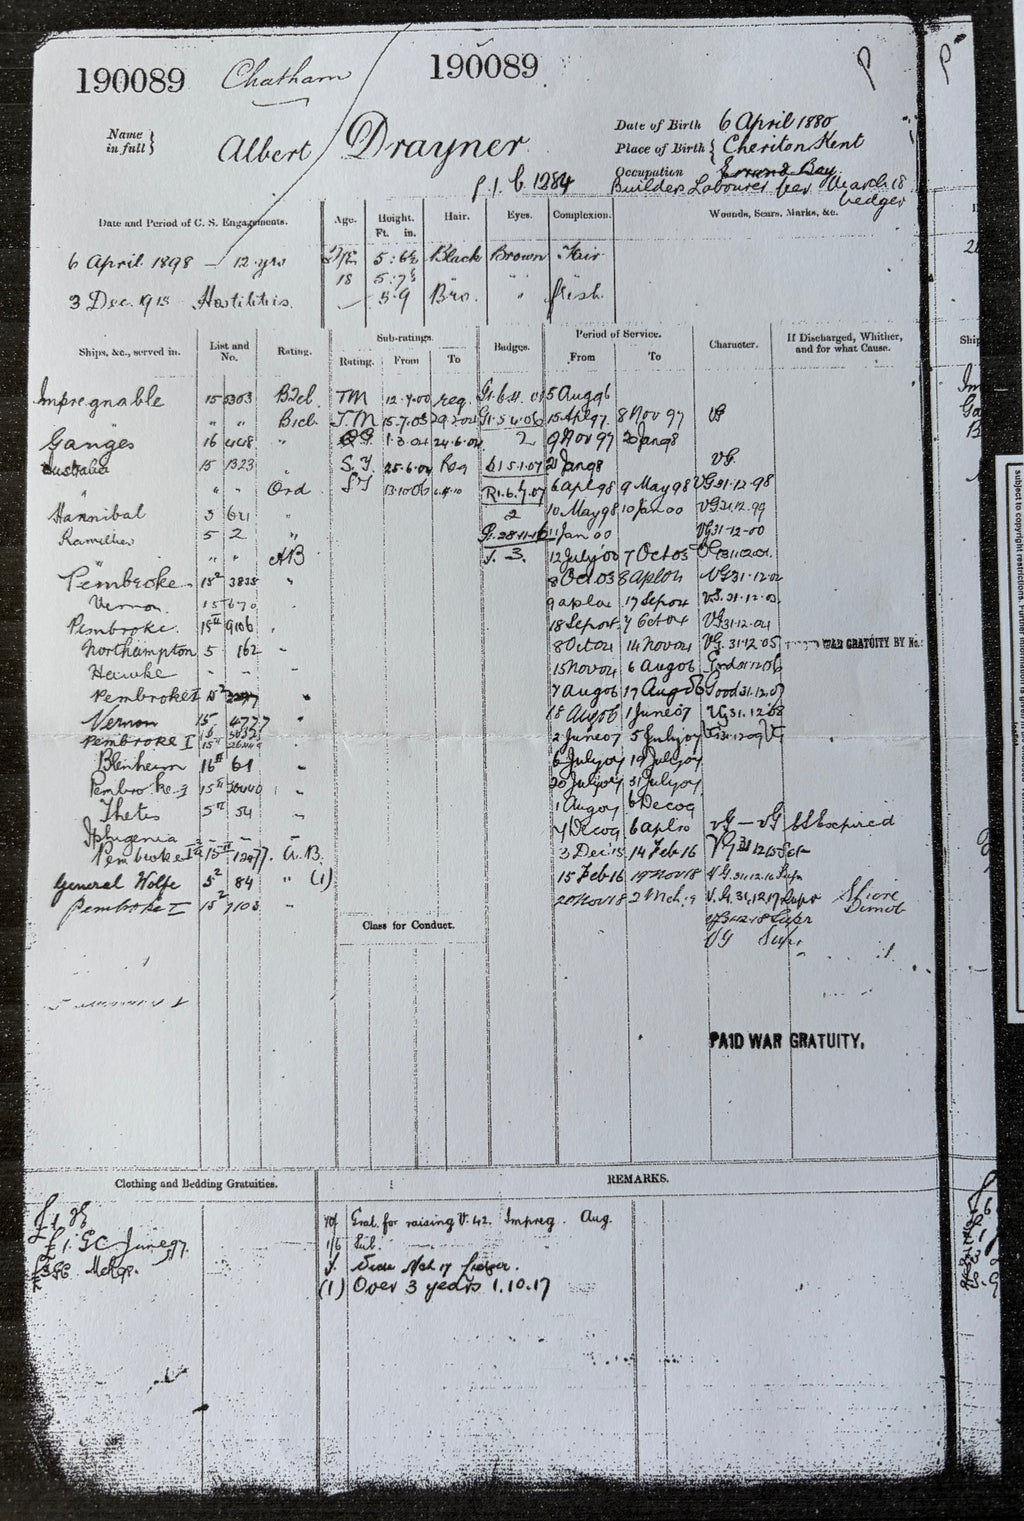 190089 Chatham 190089 P P
Name in full } Albert Drayner
Date of Birth 6 April 1880
Place of Birth { Cheriton Kent
Occupation Errand Boy
Builders Labourer per March 18 Ledger
P.I.G. 1284
Date and Period of C. S. Engagements. Age. Height. Ft. in. Hair. Eyes. Complexion. Wounds, Scars, Marks, &c.
6 April 1898 — 12 yrs 5:6½ Black Brown Fair
18 5:7½ " "
3 Dec. 1915 Hostilities. — 5.9 Bro. " fresh
Ships, &c., served in. List and No. Rating. Sub-ratings. Rating. From To Badges. Period of Service. From To Character. If Discharged, Whither, and for what Cause.
Impregnable 15 5303 B2cl. TM 12.7.00 reg. 5 Aug 96
" " B1cl. T.M 15.7.03 Gr. 5.4.06 15 Apl 97 8 Nov 97 VG
Ganges 16 448 " QG 1.3.04 24.6.04 2 9 Nov 97 20 Jan 98
Australia 15 1323 " S.G. 25.6.04 D1 5.1.07 21 Jan 98 VG.
" " Ord SG 13.10.06 R1.6.7.07 6 Apl 98 9 May 98 VG 31.12.98
Hannibal 3 621 " 2 10 May 98 10 Jan 00 VG 31.12.99
Ramillies 5 2 " Gr. 28.11.16 11 Jan 00 VG 31.12.00
" " AB J. 3. 12 July 00 7 Oct 03
Pembroke 15² 3838 " 8 Oct 03 8 Apl 04 VG 31.12.02
Vernon 15 670 9 Apl 04 17 Sep 04 VG. 31.12.03
Pembroke. 15 9106 18 Sep 04 7 Oct 04 VG 31.12.04
Northampton 5 162 " 8 Oct 04 14 Nov 04 VG. 31.12.05 WAR GRATUITY BY No:
Hawke - - - 15 Nov 04 6 Aug 06
Pembroke I 15² " 7 Aug 06 17 Aug 06 Good 31.12.07
Vernon 15 4777 " 18 Aug 06 1 June 07 VG 31.12.08
Pembroke I 15 " 2 June 07 5 July 07 VG 31.12.09 VG
Blenheim 16 61 " 6 July 07 19 July 07
Pembroke 3 15 " 20 July 07 31 July 07
Thetis 5 54 " 1 Aug 07 6 Dec 09
Iphigenia - - - 7 Dec 09 6 Apl 10 VG — VG CS Expired
Pembroke I 15 1297 A.B. 3 Dec 15 14 Feb 16 VG 31.12.15 Sat
General Wolfe 5² 84 " (1) 15 Feb 16 19 Nov 18 VG. 31.12.16 Supr
Pembroke I 15² 7103 " 20 Nov 18 2 Mch. 19 V.G. 31.12.17 Supr Shore Demob
VG 31.12.18 Supr
VG Supr
Class for Conduct.
PAID WAR GRATUITY.
Clothing and Bedding Gratuities. REMARKS.
£1. GC June 97.
Mch 98.
Grat. for raising V. 42. Impreg. Aug.
1/6 Sub.
(1) Over 3 years 1.10.17
subject to copyright restrictions. Further information is given